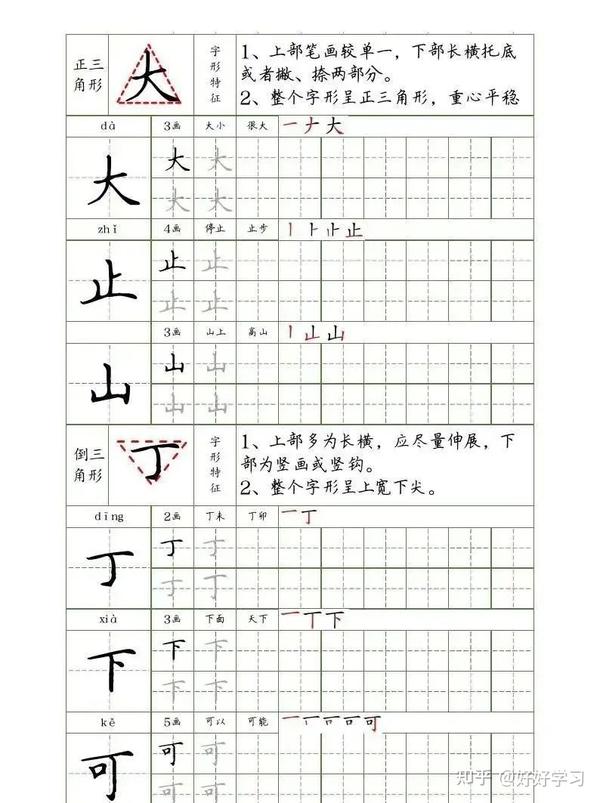 正三角形
大
字形特征
1、上部笔画较单一，下部长横托底
或者撇、捺两部分。
2、整个字形呈正三角形，重心平稳
dà 3画 大小 很大 一ナ大
大 大 大
大 大
zhǐ 4画 停止 止步 丨卜止止
止 止 止
止 止
3画 山上 高山 丨山山
山 山 山
山 山
倒三角形
丁
字形特征
1、上部多为长横，应尽量伸展，下
部为竖画或竖钩。
2、整个字形呈上宽下尖。
dīng 2画 丁未 丁卯 一丁
丁 丁 丁
丁 丁
xià 3画 下面 天下 一丅下
下 下 下
下 下
kě 5画 可以 可能 一丆可
可 可 可
可 可
知乎 @好好学习